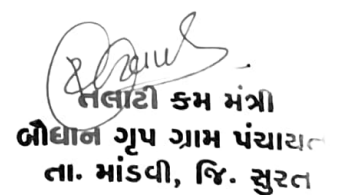 તલાટી કમ મંત્રી
બૌધાન ગૃપ ગ્રામ પંચાયત
તા. માંડવી, જિ. સુરત